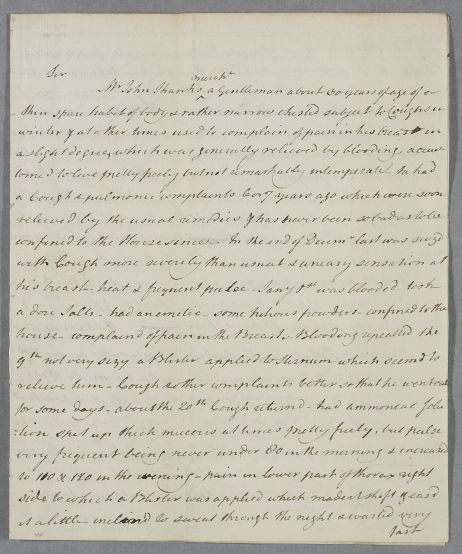 Sir
march^t
Mr John Shanks a Gentleman about 60 years of age of a
thin spare habit of body & rather narrow chested subject to Coughs in
winter & at other times used to complain of pain in his breast in
a slight degree, which was generally relieved by blooding, accus
tomed to live pretty freely but not remarkably intemperate. he had
a Cough & pulmonic complaints 6 or 7 years ago which were soon
relieved by the usual remedies & has never been so bad as to be
confined to the House since – In the end of Decem^r last was seized
with Cough more severely than usual & uneasy sensation at
his breast – heat & frequent pulse – Jan^y 1^st was blooded took
a dose Salts – had an emetic – some nitrous powders – confined to the
house – complaind of pain in the Breast. Blooding repeated the
9^th not very sizy a Blister applied to Sternum which seemd to
relieve him – Cough & other complaints better so that he went out
for some days – about the 20^th Cough returnd – had ammoniac solu
tion spit up thick mucous at times pretty freely, but pulse
very frequent being never under 80 in the morning & increased
to 110 & 120 in the evening – pain in lower part of thorax right
side to which a Blister was applied which made it shift & easd
it a little – inclind to sweat through the night & wasted very
fast